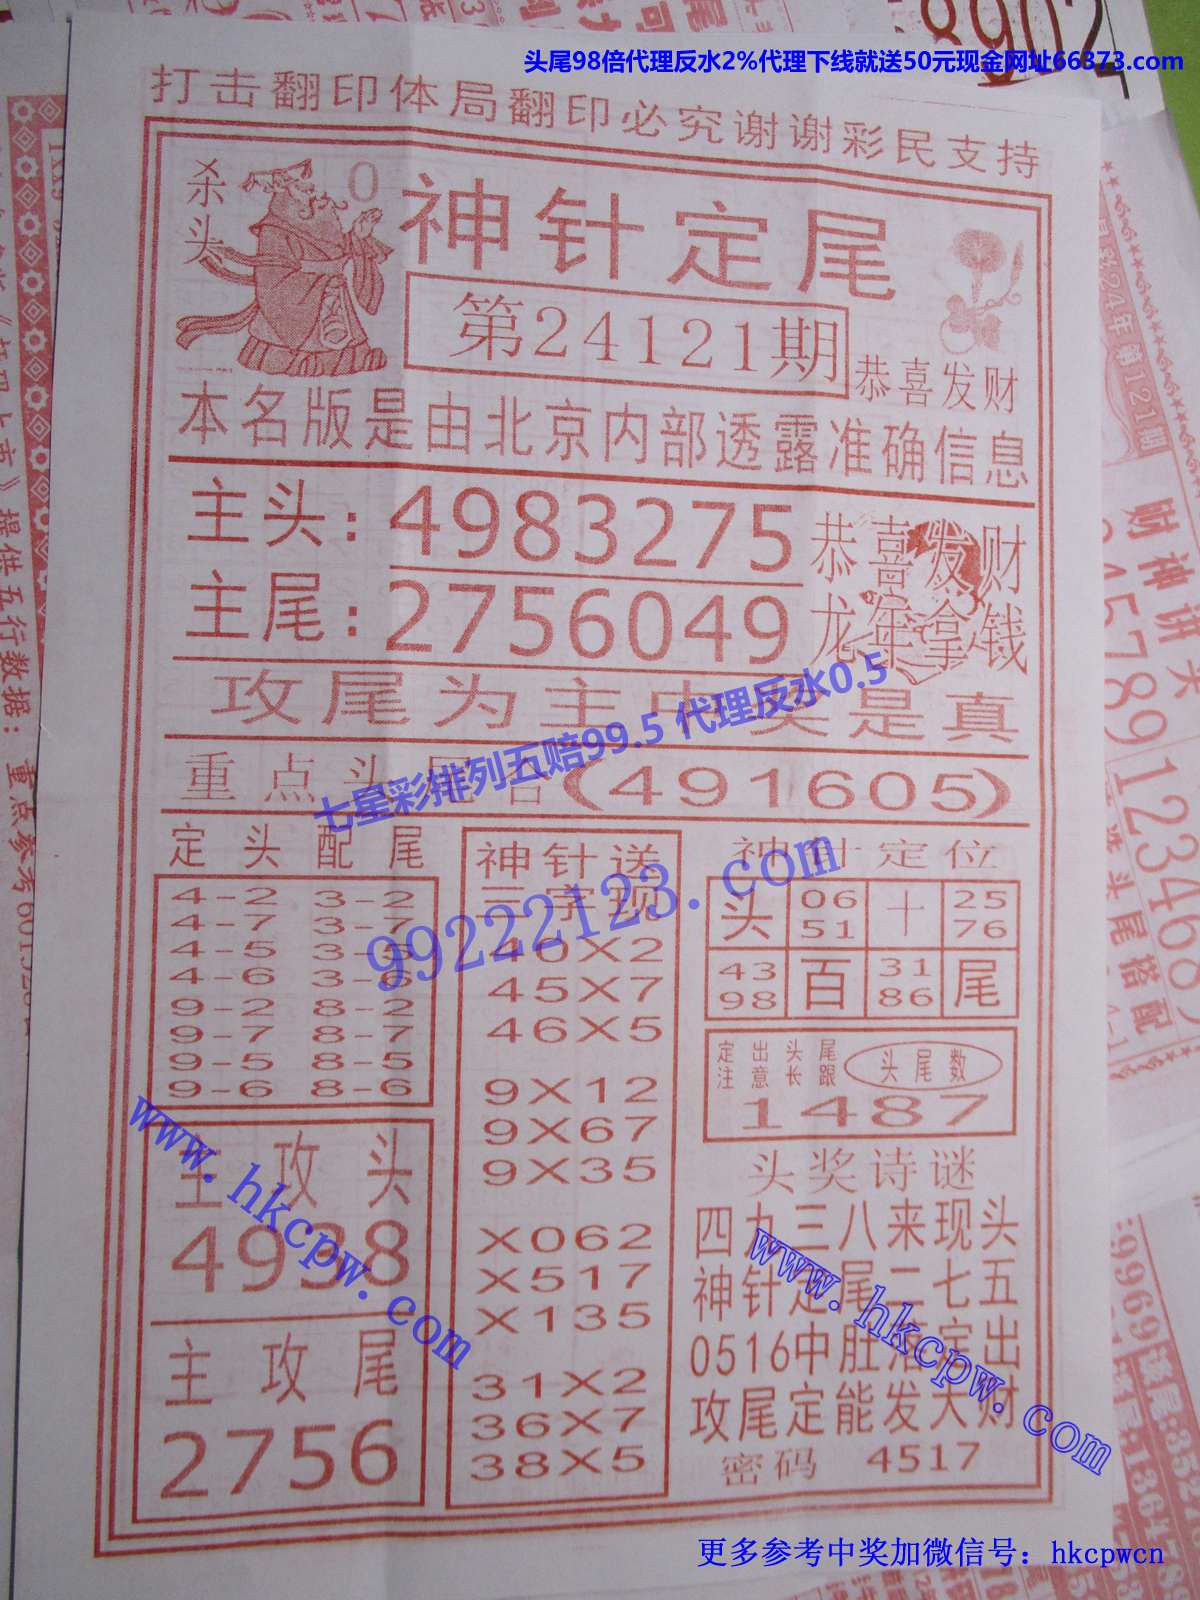 头尾98倍代理反水2%代理下线就送50元现金网址66373.com
打击翻印体局翻印必究谢谢彩民支持
杀头
0
神针定尾
第24121期
恭喜发财
本名版是由北京内部透露准确信息
主头：4983275
恭喜发财
主尾：2756049
龙年拿钱
攻尾为主中奖是真
七星彩排列五赔99.5 代理反水0.5
重点头尾合(491605)
定头配尾
4-2 3-2
4-7 3-7
4-5 3-5
4-6 3-6
9-2 8-2
9-7 8-7
9-5 8-5
9-6 8-6
99222123.com
神针送
三字现
40X2
45X7
46X5
9X12
9X67
9X35
X062
X517
X135
31X2
36X7
38X5
神针定位
头 06 十 25
51 76
43 百 31 尾
98 86
定出头尾
注意长跟
头尾数
1487
主攻头
4938
主攻尾
2756
www.hkcpw.com
头奖诗谜
四九三八来现头
神针定尾二七五
0516中肚落定出
攻尾定能发大财
密码 4517
www.hkcpw.com
更多参考中奖加微信号：hkcpwcn
8902
24年第121期
财神饼
45789
123468
头尾搭配
提供五行数据：重点参考